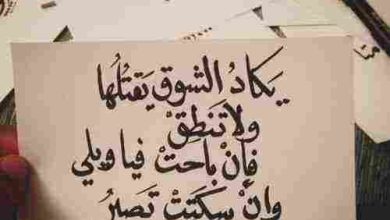 يَكادُ الشوق يَقتُلُها
ولا تَنطِقْ
فإنْ باحَتْ فيا ويلي
وإنْ سَكَتَتْ تَصيرُ